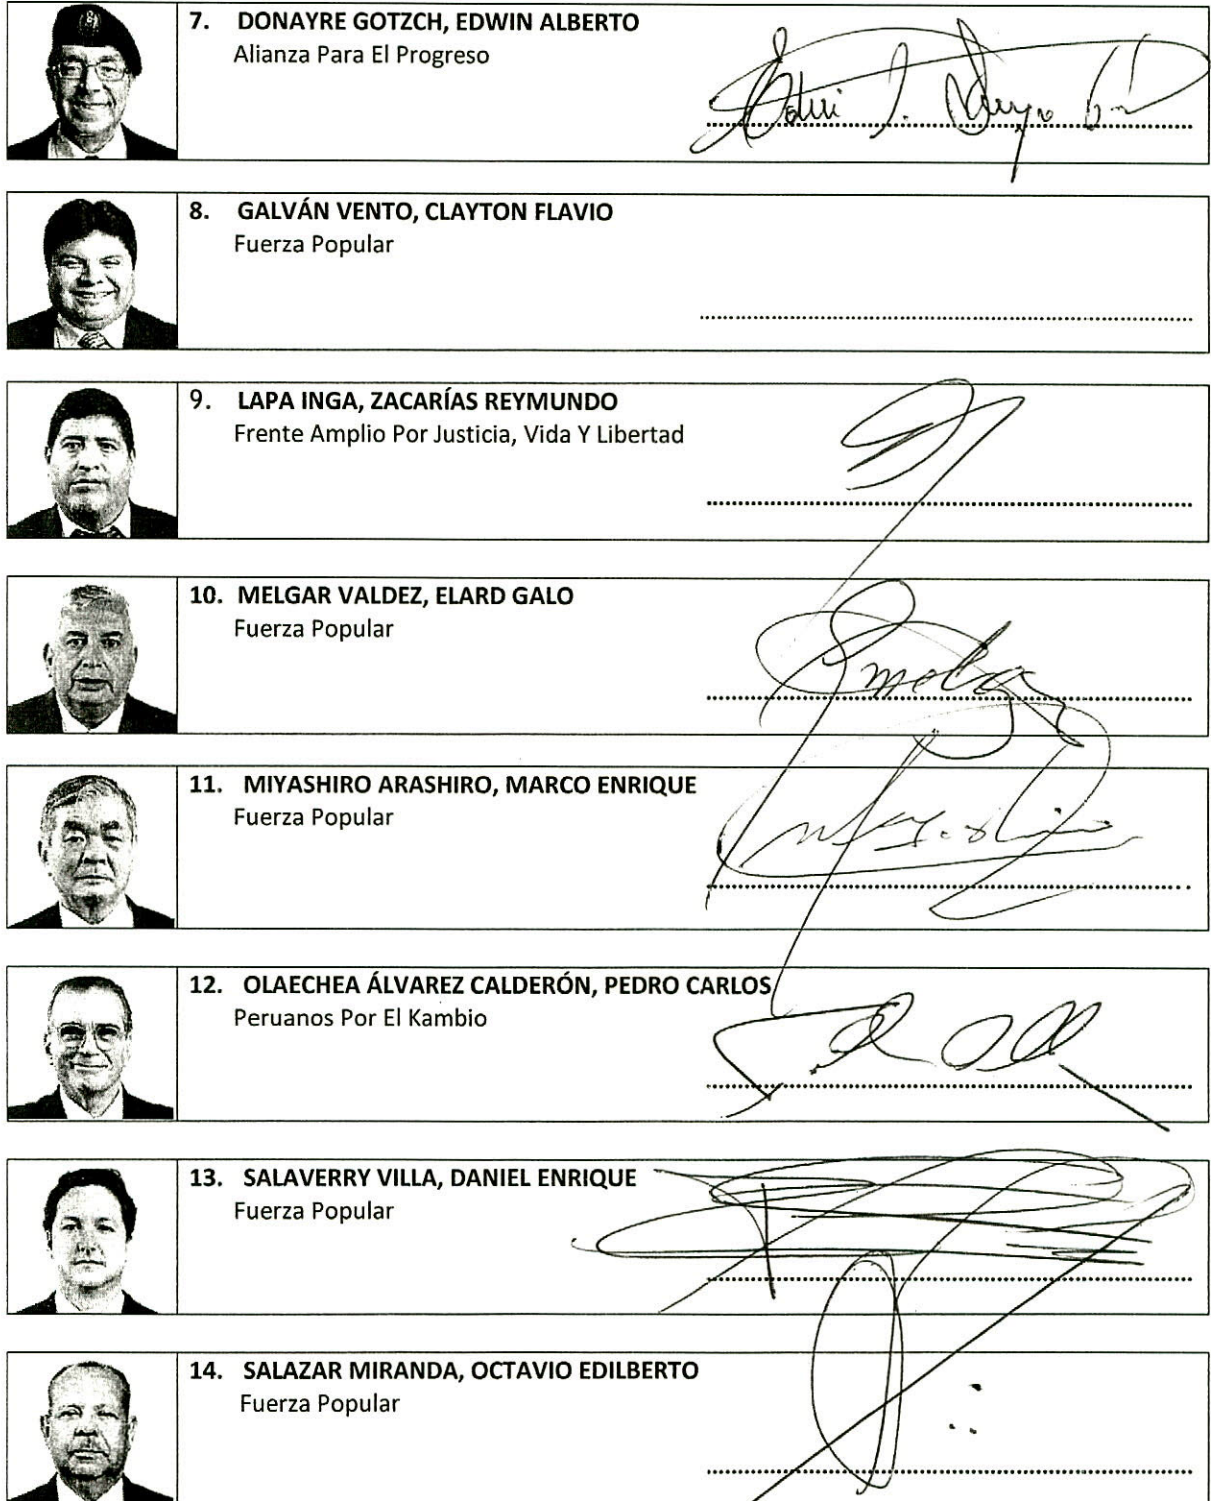 7. DONAYRE GOTZCH, EDWIN ALBERTO
Alianza Para El Progreso
8. GALVÁN VENTO, CLAYTON FLAVIO
Fuerza Popular
9. LAPA INGA, ZACARÍAS REYMUNDO
Frente Amplio Por Justicia, Vida Y Libertad
10. MELGAR VALDEZ, ELARD GALO
Fuerza Popular
11. MIYASHIRO ARASHIRO, MARCO ENRIQUE
Fuerza Popular
12. OLAECHEA ÁLVAREZ CALDERÓN, PEDRO CARLOS
Peruanos Por El Kambio
13. SALAVERRY VILLA, DANIEL ENRIQUE
Fuerza Popular
14. SALAZAR MIRANDA, OCTAVIO EDILBERTO
Fuerza Popular